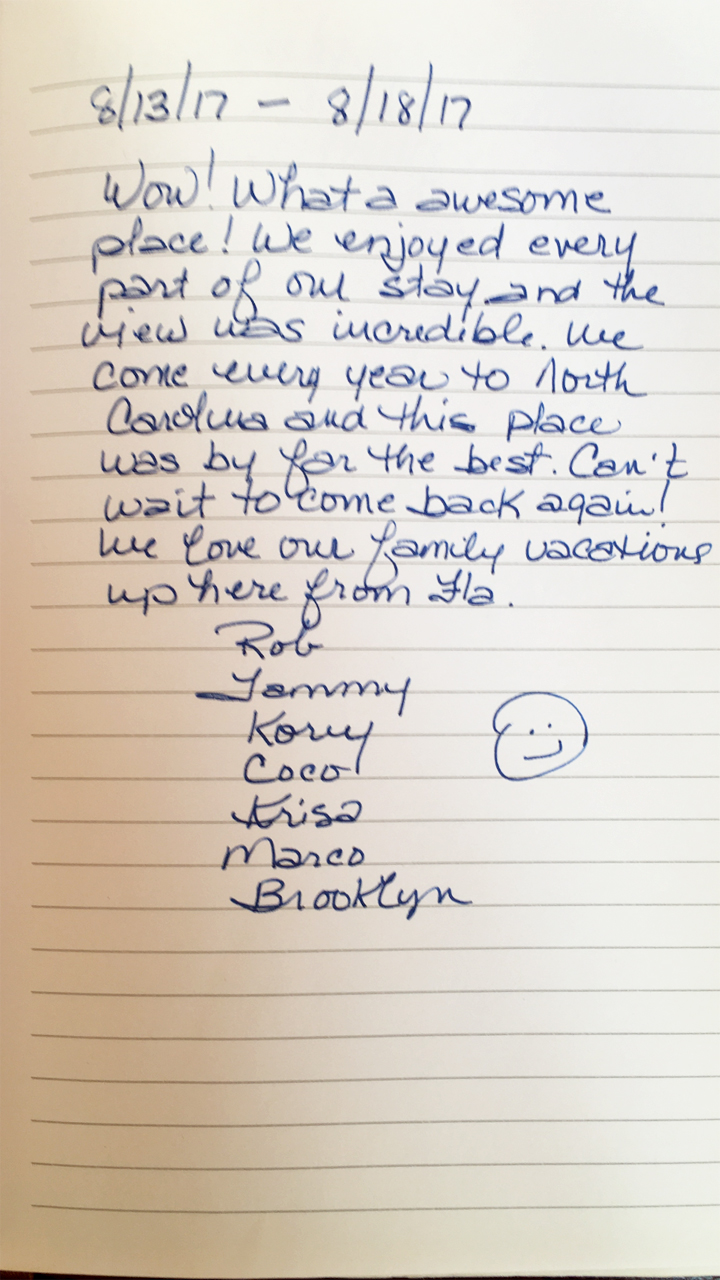 8/13/17 – 8/18/17
Wow! What a awesome
place! We enjoyed every
part of our stay and the
view was incredible. We
come every year to North
Carolina and this place
was by far the best. Can't
wait to come back again!
We love our family vacations
up here from Fla.
Rob
Tammy
Korey
Coco
Krisa
Marco
Brooklyn